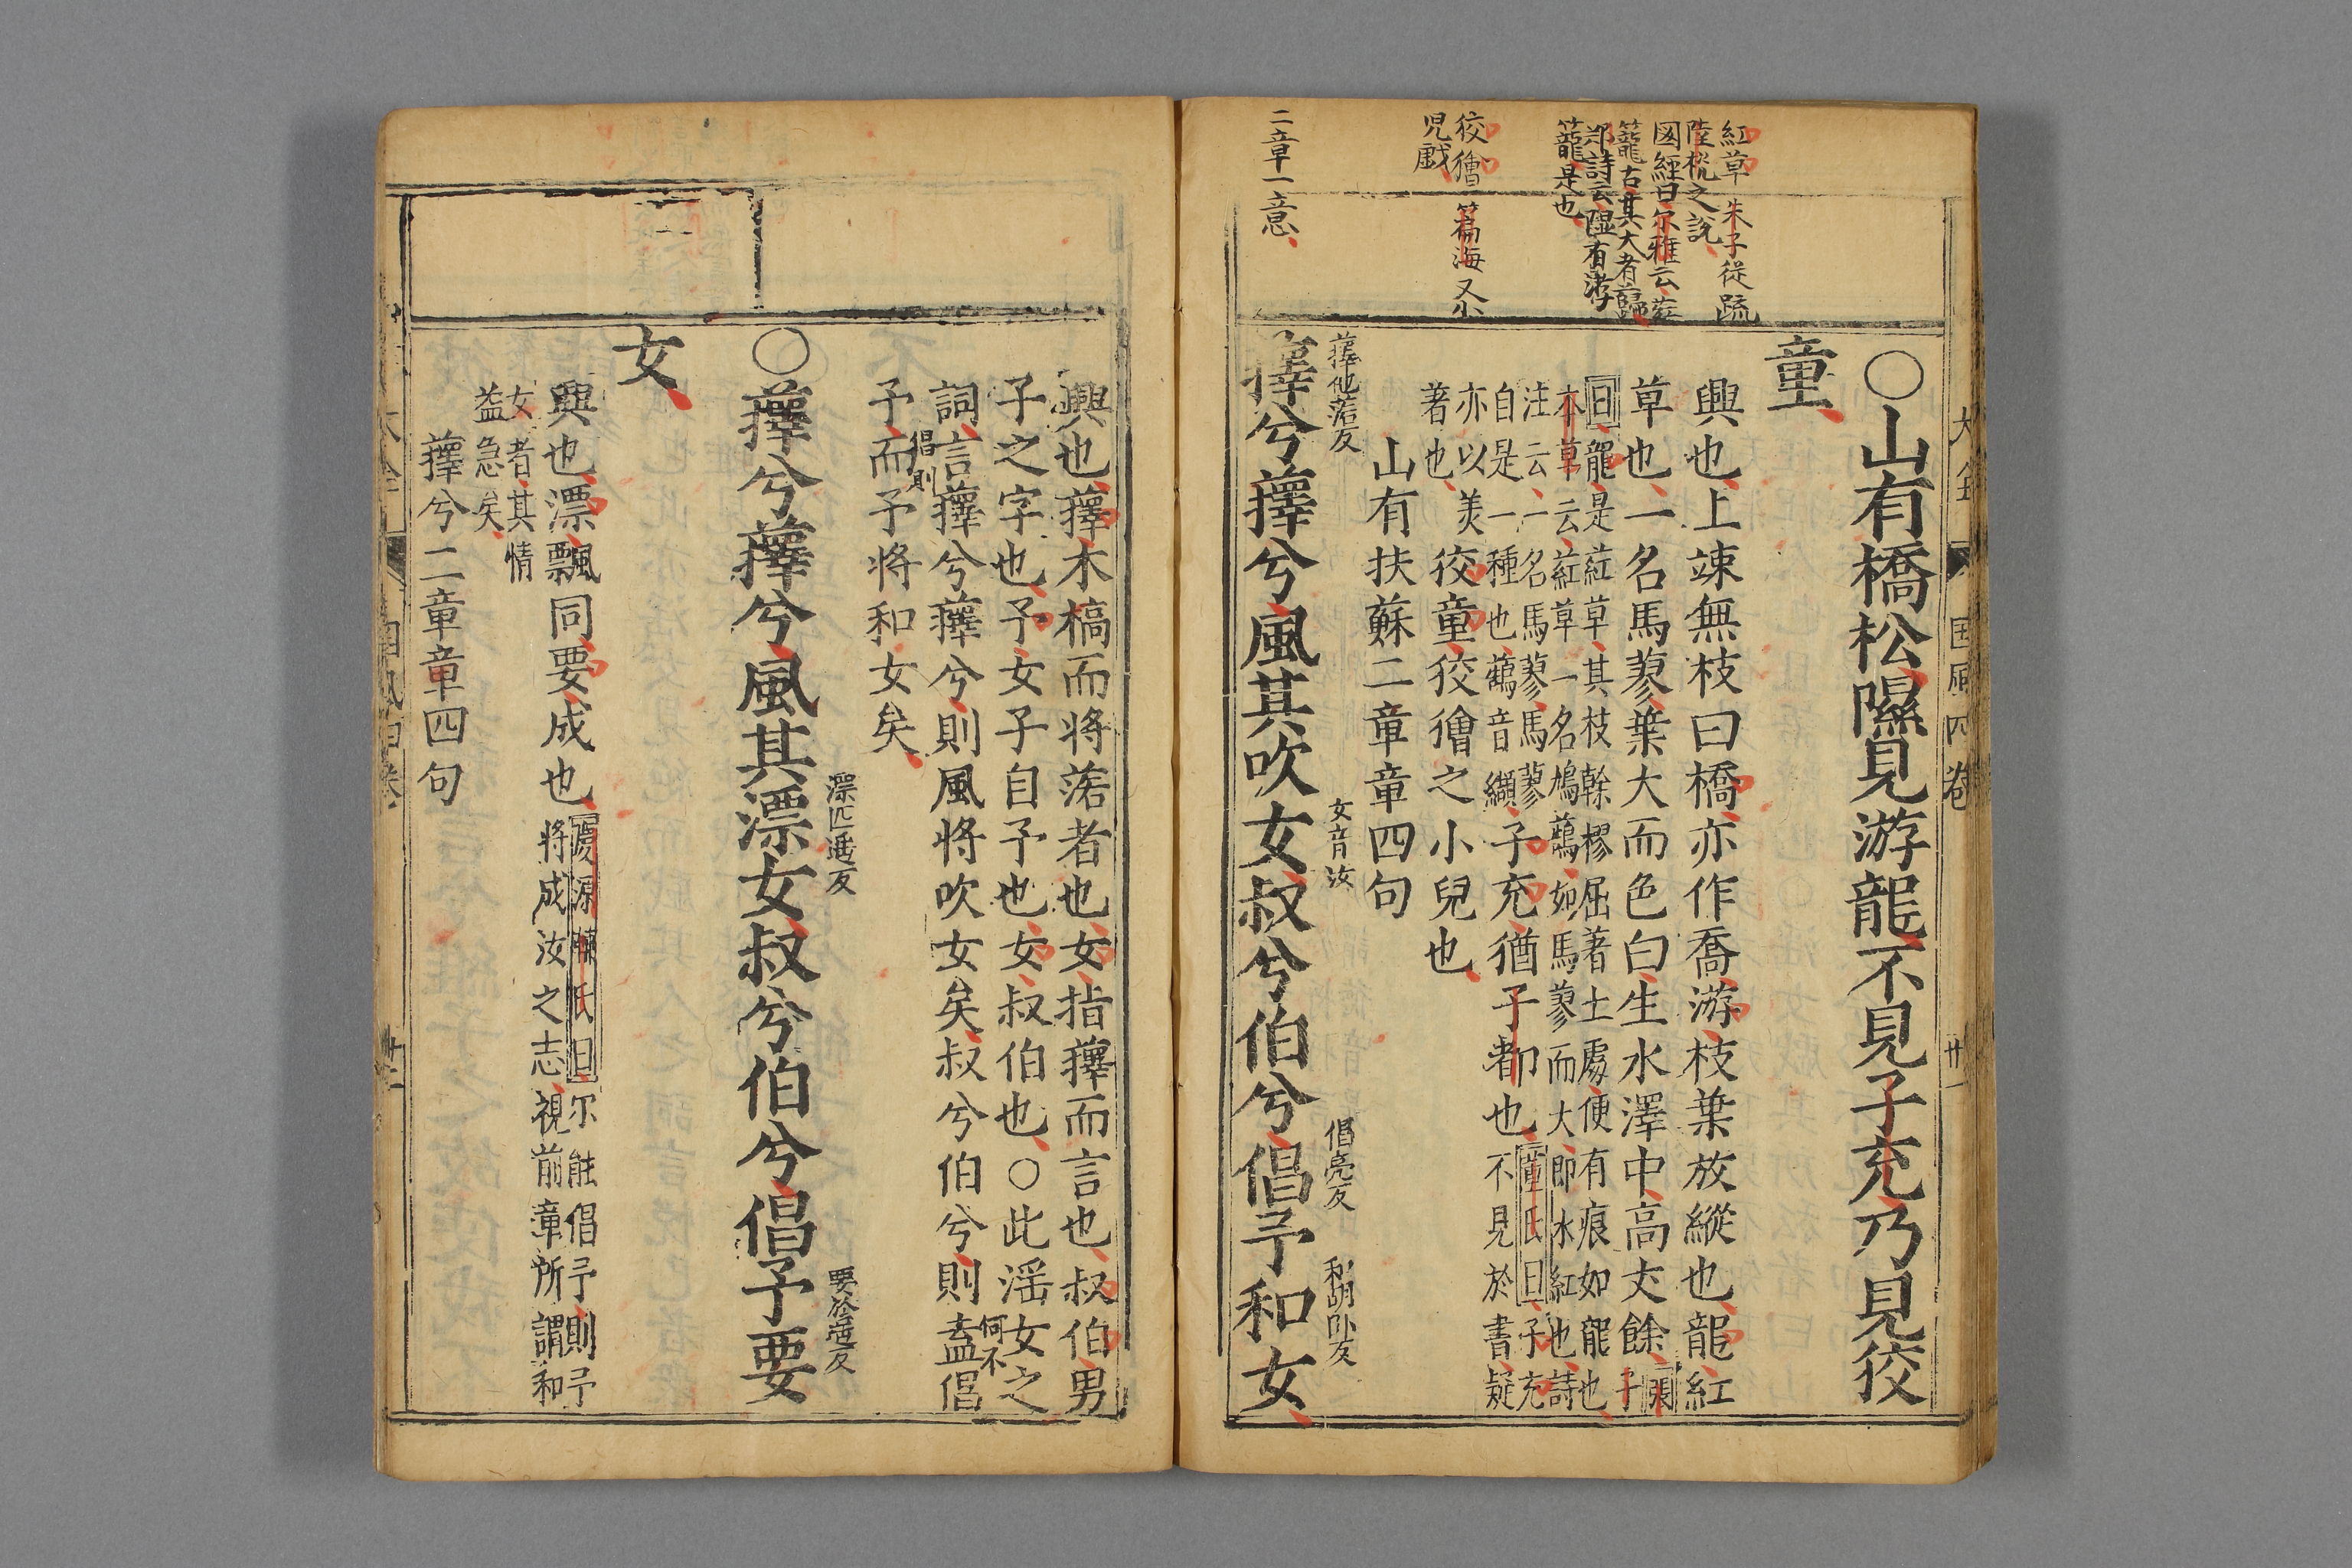 紅草 朱子從䟽
陸機之說
圖經曰尓雅云葒
蘢古其大者蘬
鄭詩云隰有游
蘢是也
狡獪 篇海又小
児戯
二章一意
○山有橋松隰見游龍不見子充乃見狡
童
興也上竦無枝曰橋亦作喬游枝葉放縱也龍紅
草也一名馬蓼葉大而色白生水澤中高丈餘 張子
曰龍是葒草其枝幹樛屈著土處便有痕如龍也
本草云葒草一名鴻䕽如馬蓼而大即水紅也詩
注云一名馬蓼馬蓼
自是一種也鸛音纈 子充猶子都也 董氏曰子充
不見於書疑
亦以美
著也 狡童狡獪之小兒也
山有扶蘇二章章四句
蘀他落反
蘀兮蘀兮風其吹女叔兮伯兮倡予和女
女音汝
倡亮反
和胡卧反
興也蘀木槁而將落者也女指蘀而言也叔伯男
子之字也予女子自予也女叔伯也○此淫女之
詞言蘀兮蘀兮則風將吹女矣叔兮伯兮則盍倡
何不
倡則
予而予將和女矣
○蘀兮蘀兮風其漂女叔兮伯兮倡予要
漂匹遙反
要於遥反
女
興也漂飄同要成也 慶源輔氏曰尓能倡予則予
將成汝之志視前章所謂和
女者其情
益急矣
蘀兮二章章四句
大全
国風四卷
廿一